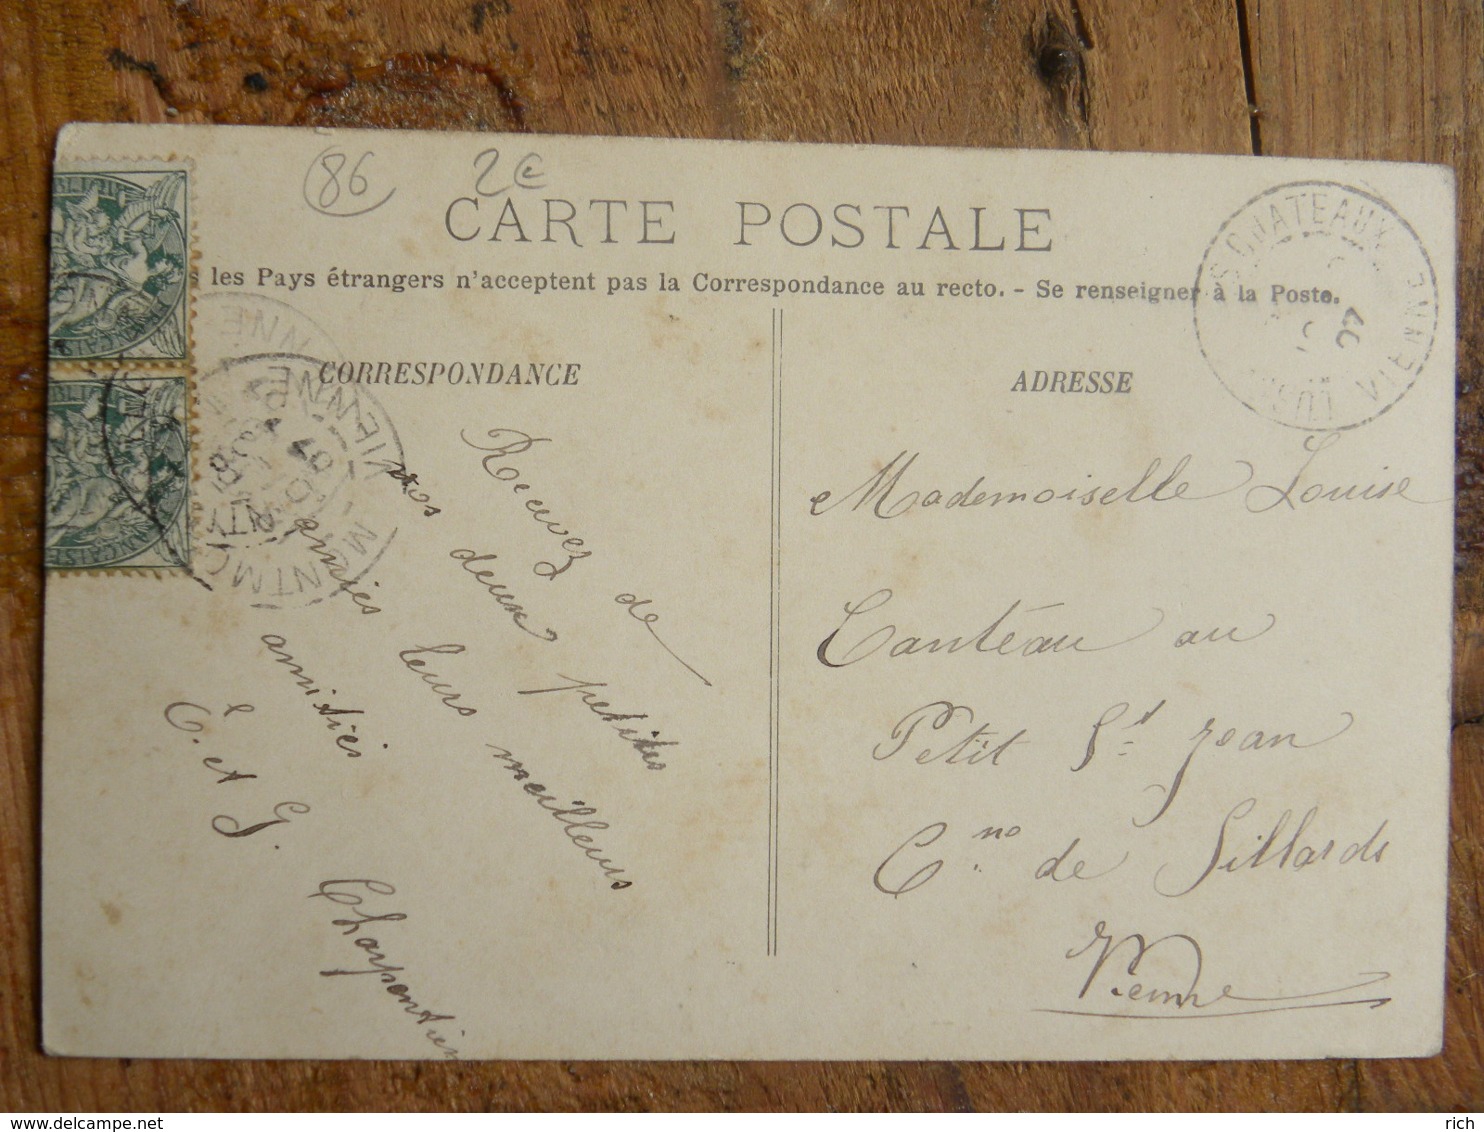 86
2€
CARTE POSTALE
s les Pays étrangers n'acceptent pas la Correspondance au recto. - Se renseigner à la Poste.
CORRESPONDANCE
Recevez de
vos deux petites
amies leurs meilleurs
amitiés
C. et G. Charpentier
ADRESSE
Mademoiselle Louise
Canteau au
Petit St Jean
Cne de Sillards
Vienne
CHATEAUX
VIENNE
07
VIENNE
FRANÇAISE
FRANÇAISE
delcampe.net
rich